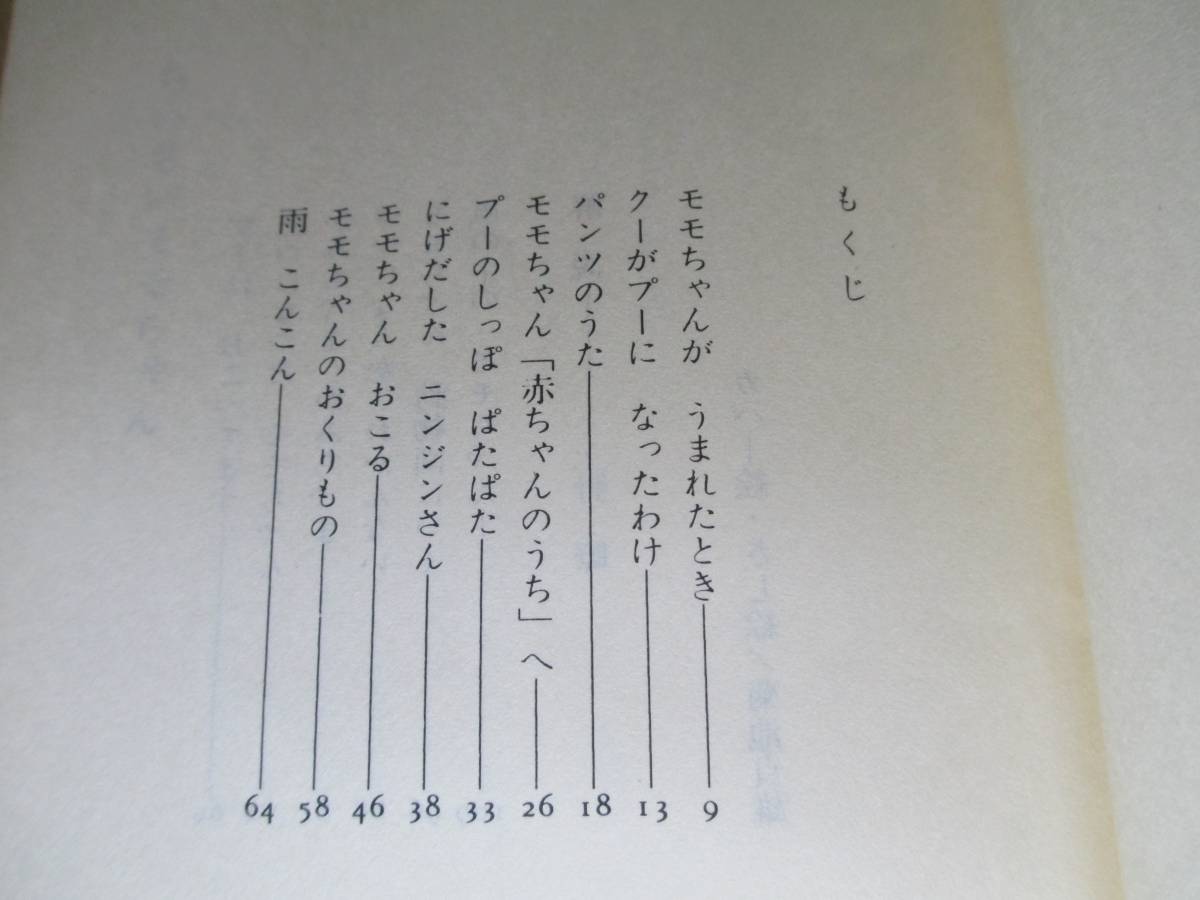 もくじ
モモちゃんが　うまれたとき 9
クーがプーに　なったわけ 13
パンツのうた 18
モモちゃん「赤ちゃんのうち」へ 26
プーのしっぽ　ぱたぱた 33
にげだした　ニンジンさん 38
モモちゃん　おこる 46
モモちゃんのおくりもの 58
雨　こんこん 64